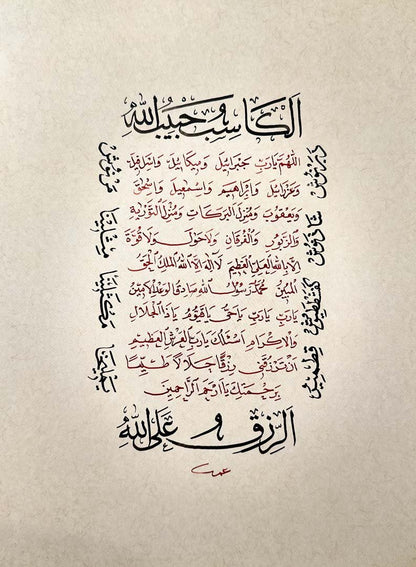 الكاسب و حبيب الله
اللهم يارب جبرائيل وميكائيل واسرافيل
وعزرائيل وابراهيم واسمعيل واسحق
ويعقوب ومنزل البركات ومنزل التورية
والزبور والفرقان ولاحول ولا قوة
الا بالله العلي العظيم لا اله الا الله الملك الحق
المبين محمد رسول الله صادق الوعد الامين
يارب يارب ياحي ياقيوم ياذا الجلال
والاكرام اسئلك يارب العرش العظيم
ان ترزقني رزقا حلالا طيبا
برحمتك يا ارحم الراحمين
الرزق و على الله
دبرنوش
شاذنوش
كفشططيوش
قطمير
مرنوش
مثلينا
مكسلينا
يمليخا